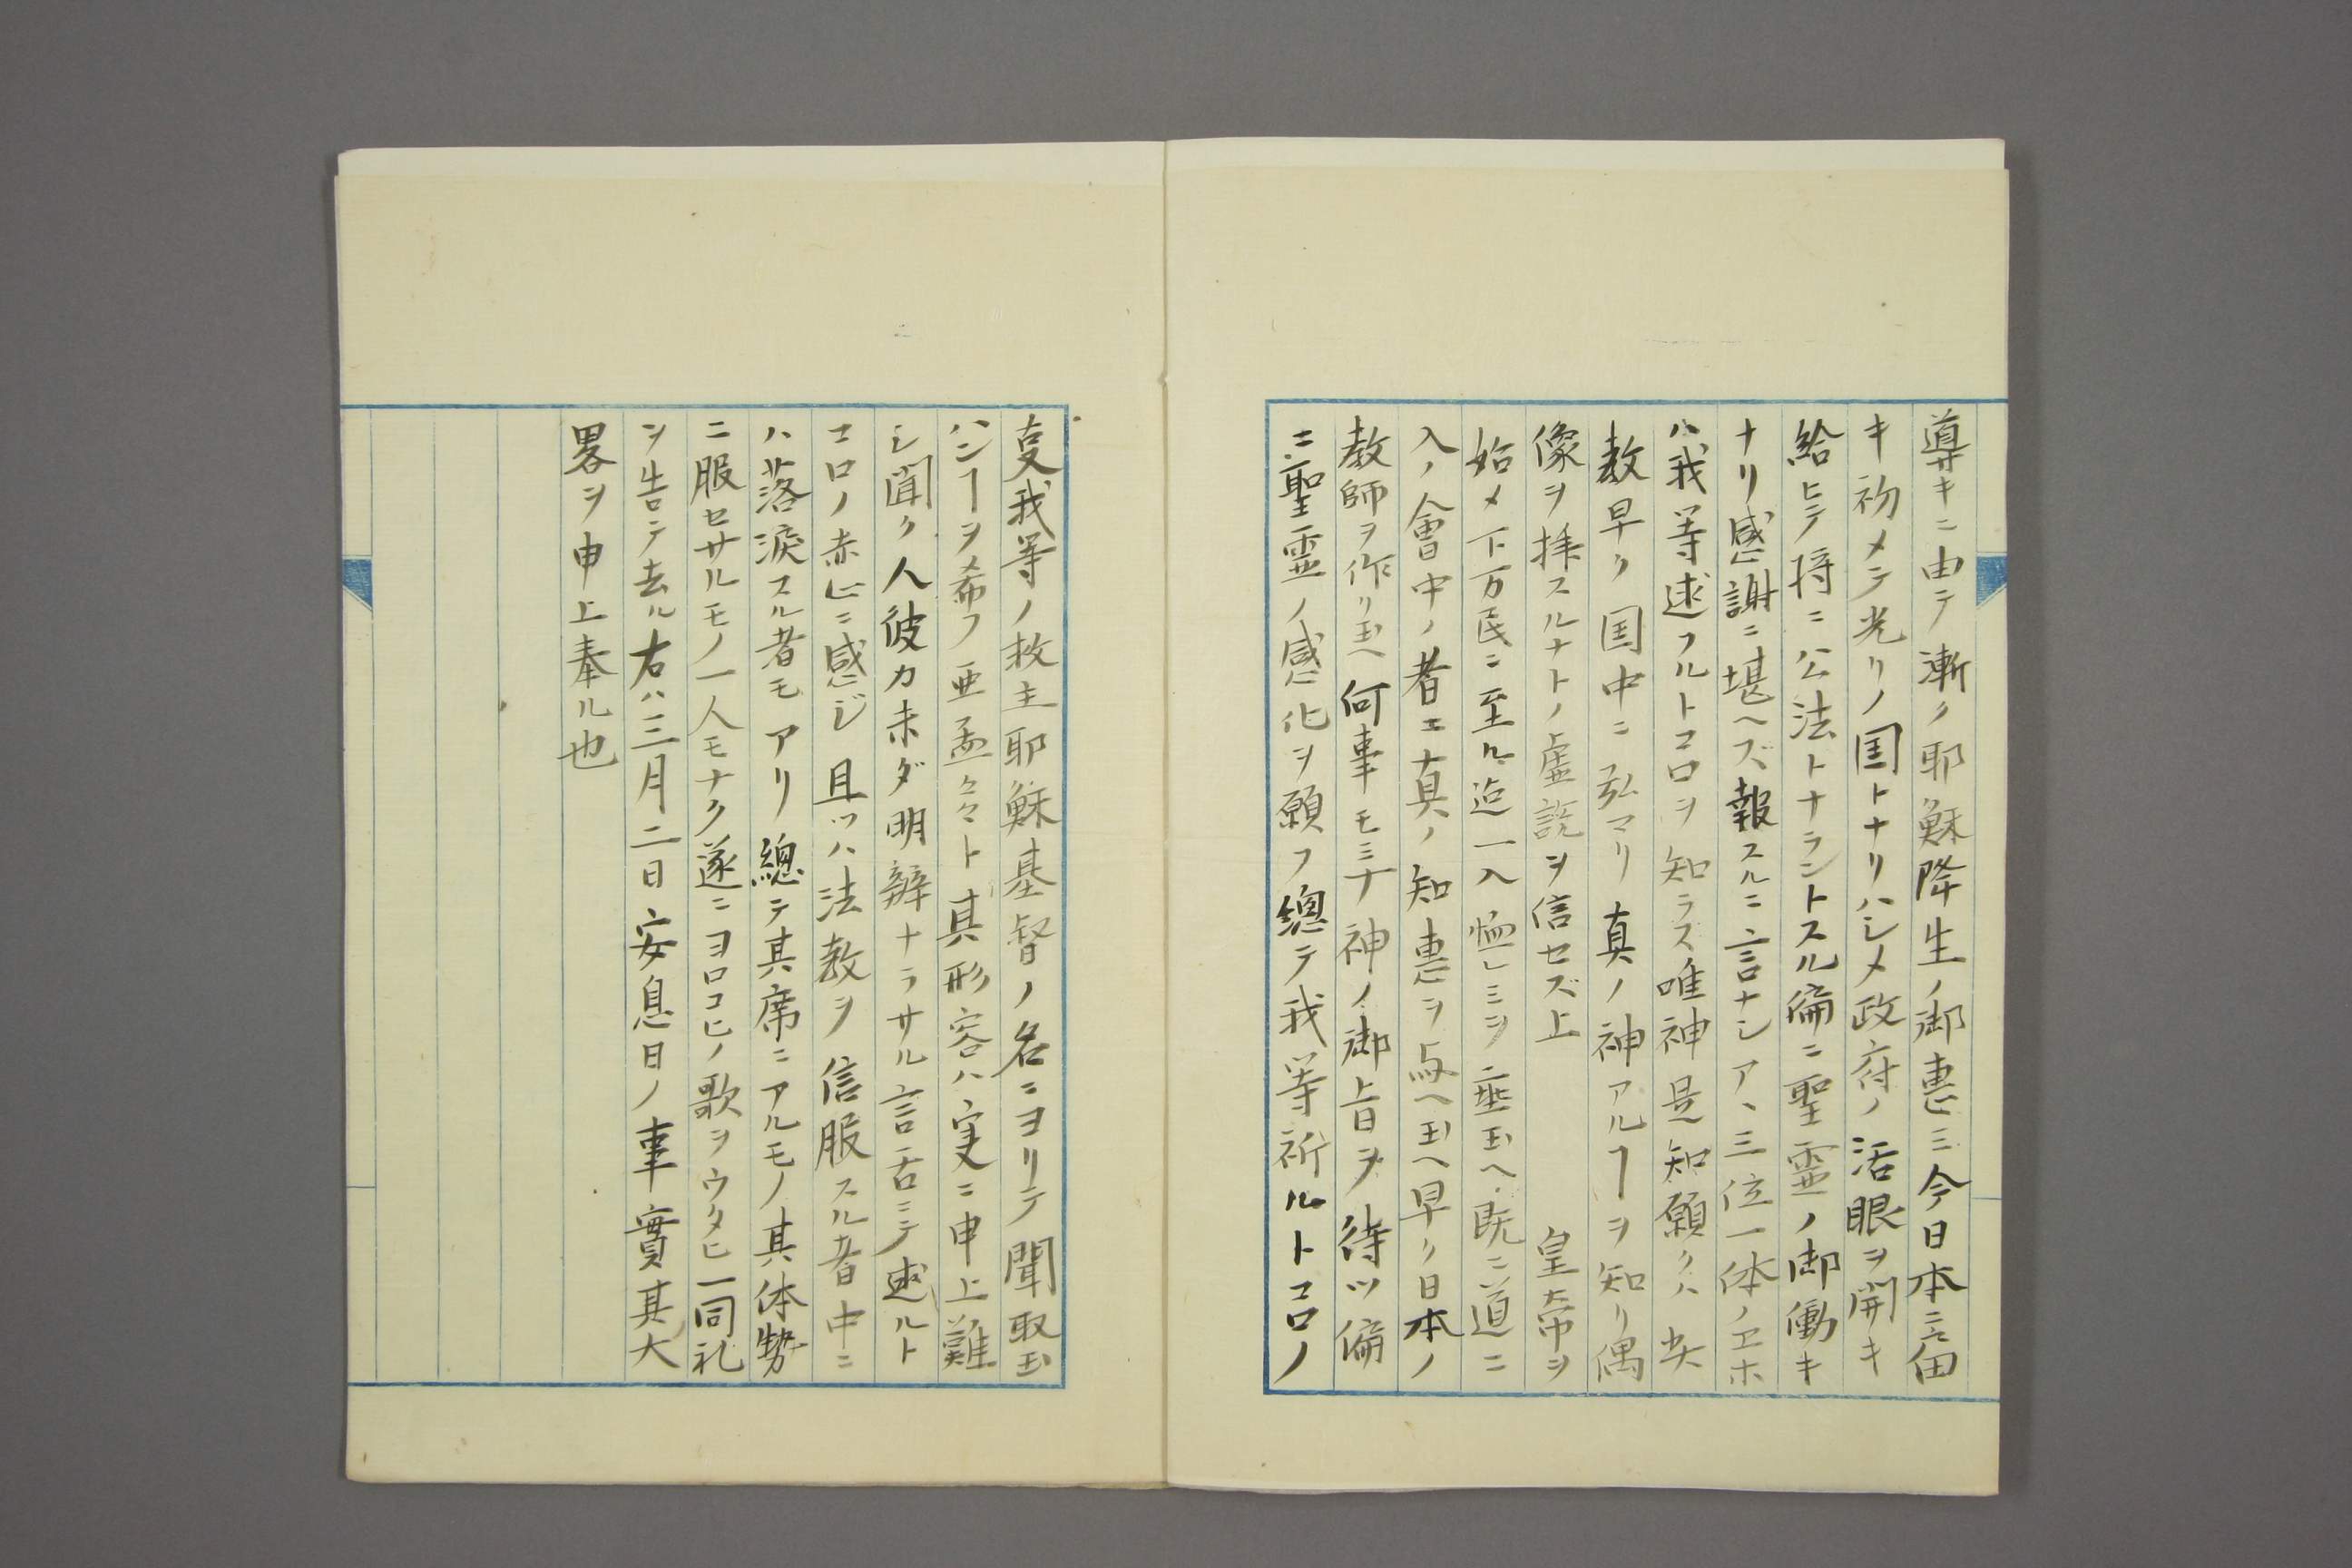 導キニ由テ漸ク耶穌降生ノ御惠ミ今日本ニ宿
キ初メテ光リノ国トナリハシメ政府ノ活眼ヲ開キ
給ヒテ将ニ公法トナラントスル偏ニ聖霊ノ御働キ
ナリ感謝ニ堪ヘズ報スルニ言ナシアヽ三位一体ノヱホ
ハ我等逑フルトコロヲ知ラス唯神是知願クハ
教早ク国中ニ弘マリ真ノ神アルヿヲ知リ偶
像ヲ拝スルナトノ虚説ヲ信セズ上 皇帝ヲ
始メ下万民ニ至ル迠一入恤レミヲ垂玉ヘ既ニ道ニ
入ノ會中ノ者エ真ノ知惠ヲ与ヘ玉ヘ早ク日本ノ
教師ヲ作リ玉ヘ何事モミナ神ノ御旨ヲ待ツ偏
ニ聖霊ノ感化ヲ願フ總テ我等祈ルトコロノ
叓我等ノ救主耶穌基督ノ名ニヨリテ聞取玉
ハンヿヲ希フ亜孟々々ト其形容ハ実ニ申上難
シ聞ク人彼カ未ダ明辨ナラサル言舌ニテ逑ルト
コロノ赤心ニ感ジ且ツハ法教ヲ信服スル者中ニ
ハ落淚スル者モアリ總テ其席ニアルモノ其体勢
ニ服セサルモノ一人モナク遂ニヨロコヒノ歌ヲウタヒ一同礼
ヲ告テ去ル右ハ三月二日安息日ノ事實其大
畧ヲ申上奉ル也